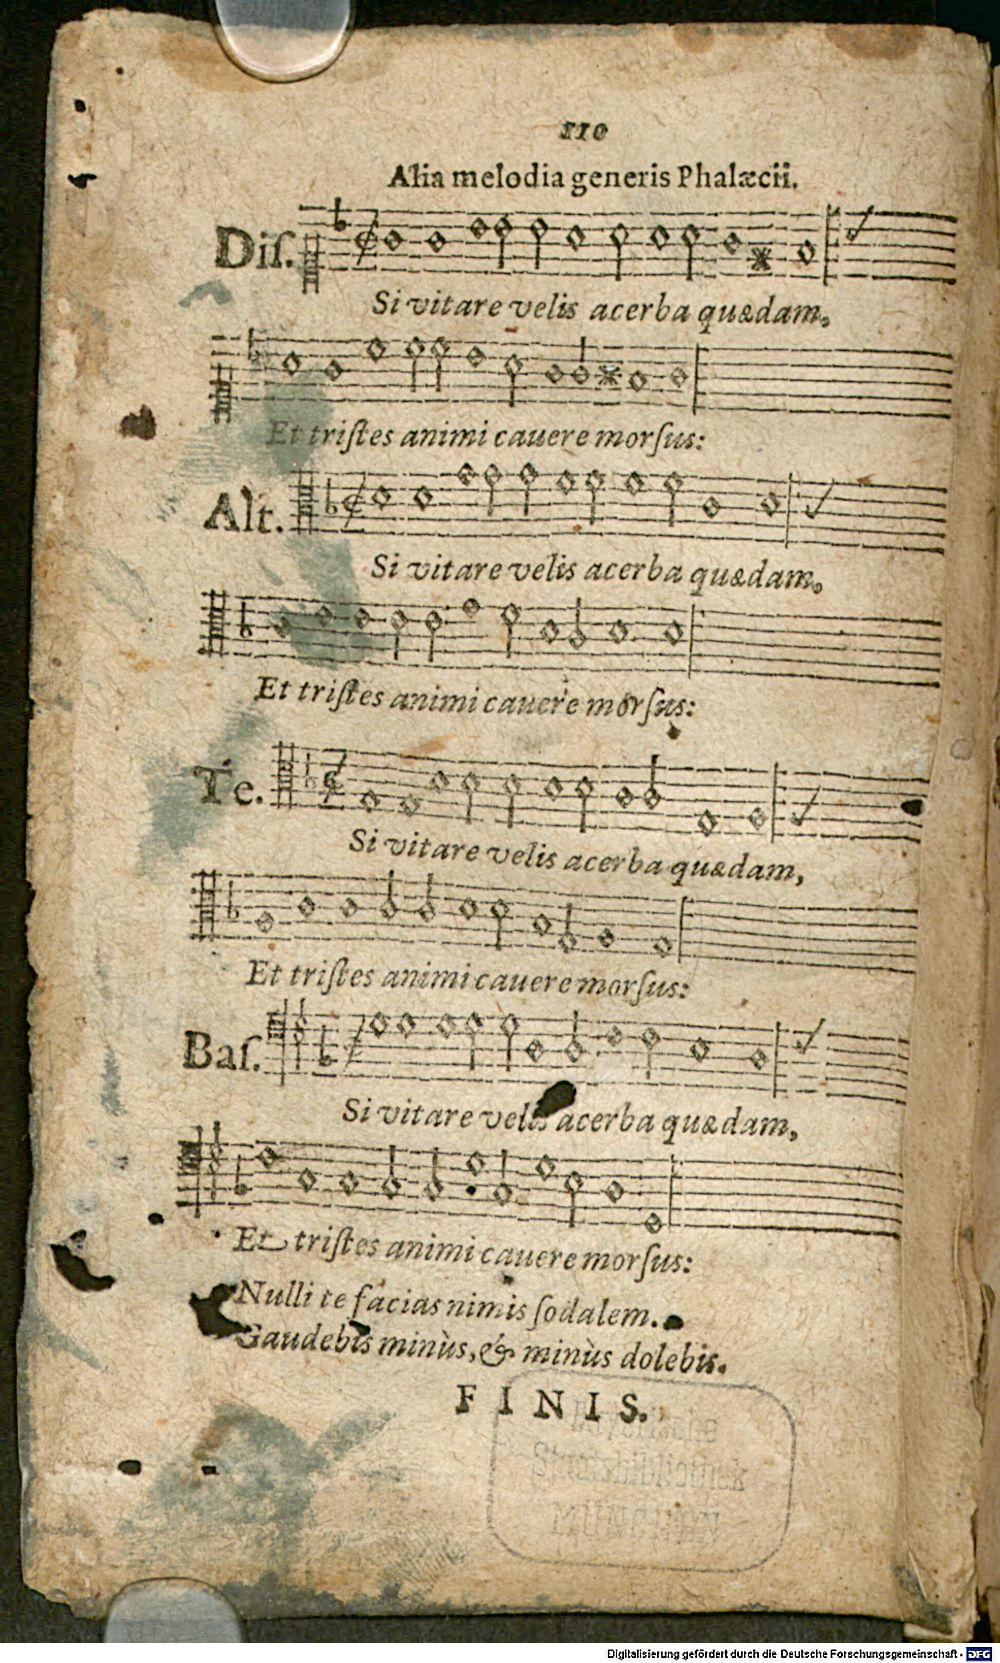 110
Alia melodia generis Phalæcii.
Diſ.
Si vitare velis acerba quædam,
Et triſtes animi cauere morſus:
Alt.
Si vitare velis acerba quædam,
Et triſtes animi cauere morſus:
Te.
Si vitare velis acerba quædam,
Et triſtes animi cauere morſus:
Baſ.
Si vitare velis acerba quædam,
Et triſtes animi cauere morſus:
Nulli te facias nimis ſodalem.
Gaudebis minùs, & minùs dolebis.
FINIS.
Bayerische
Staatsbibliothek
MÜNCHEN
Digitalisierung gefördert durch die Deutsche Forschungsgemeinschaft - DFG